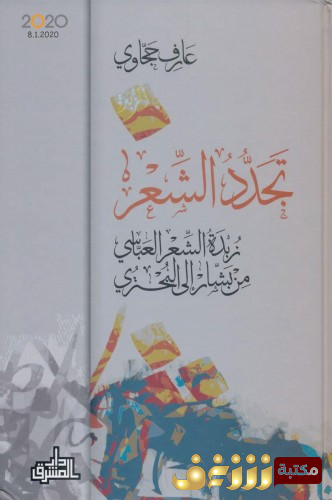 2020
8.1.2020
عارف حجاوي
تجدُّدُ الشِّعر
زُبدَةُ الشعر العبّاسي
من بشّار إلى البُحتري
دار
المشرق
مكتبة